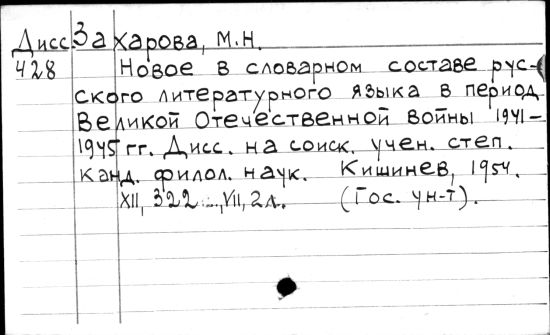 Дисс. Захарова, М.Н.
428 Новое в словарном составе рус-
ского литературного языка в период
Великой Отечественной войны 1941-
1945 гг. Дисс. на соиск. учен. степ.
канд. филол. наук. Кишинев, 1954.
XII, 322 .., VII, 2 л. (Гос. ун-т).